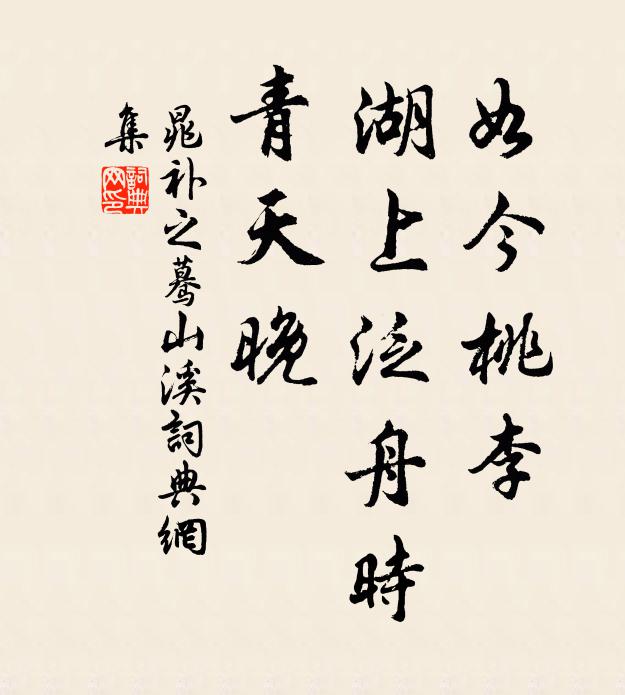 如今桃李
湖上泛舟時
青天晚
晁补之驀山溪詞典網
集
詞典
网印